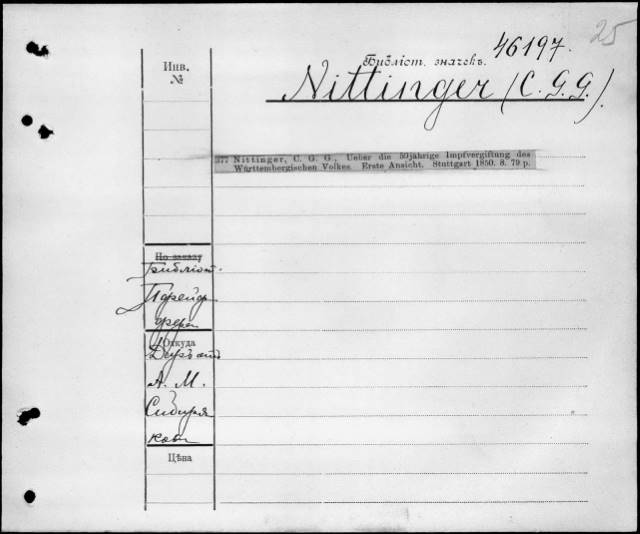 25
46197.
Библіот. значекъ.
Nittinger (C. G. G.).
Инв.
№
377 Nittinger, C. G. G., Ueber die 50jährige Impfvergiftung des
Württembergischen Volkes. Erste Ansicht. Stuttgart 1850. 8. 79 p.
По заказу
Библіот.
Пфейф
фера
Откуда
Даръ
А. М.
Сибиря
кова
Цѣна